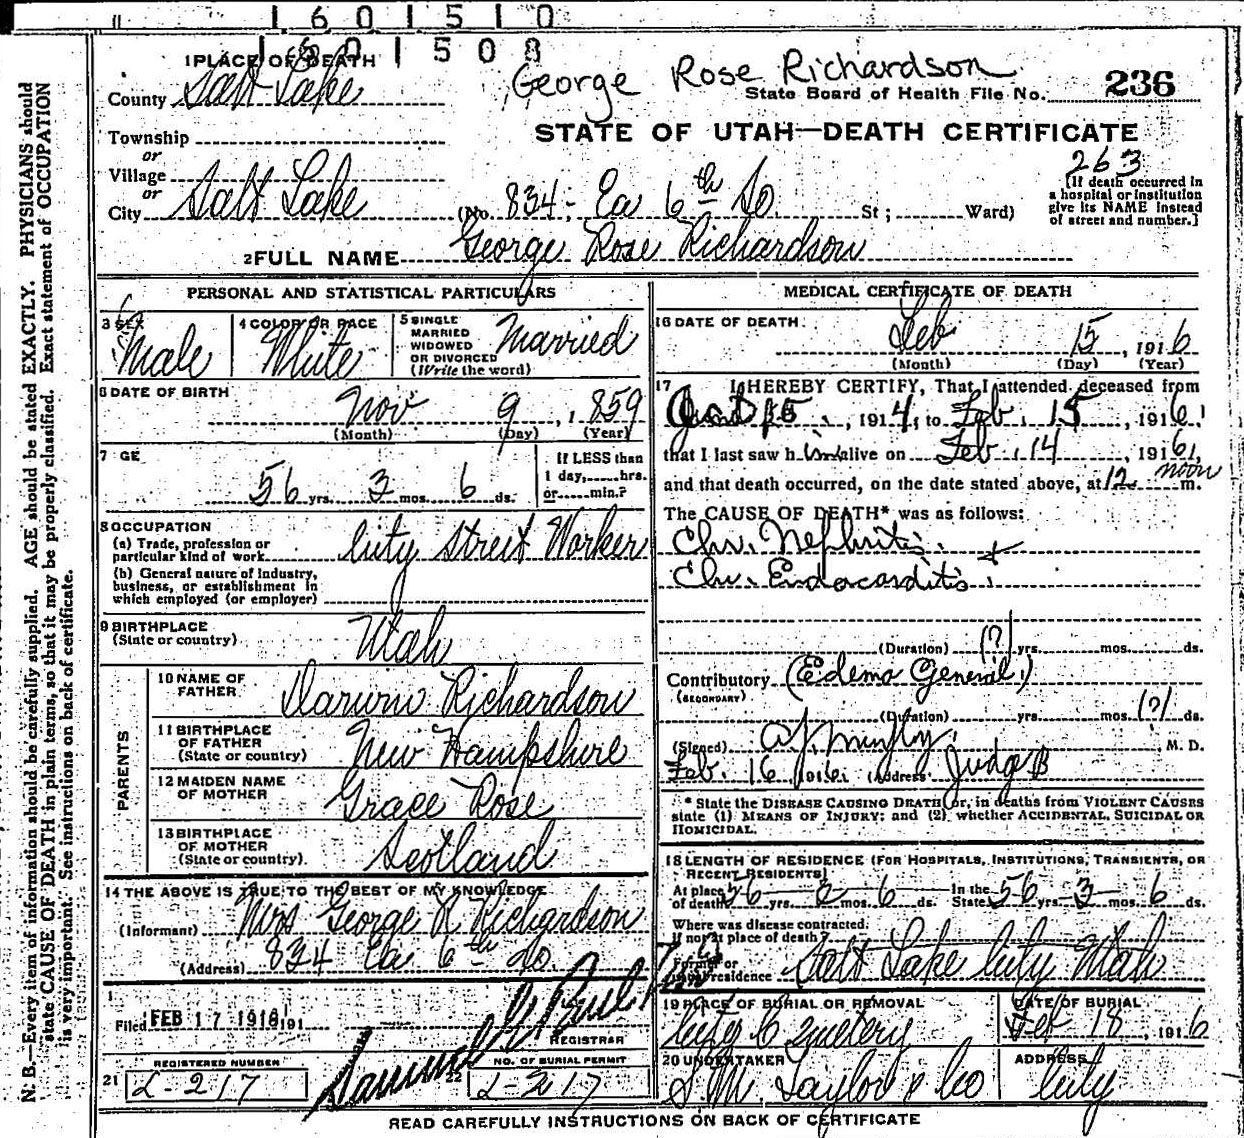 1601510
1601508
1 PLACE OF DEATH
George Rose Richardson
County Salt Lake
State Board of Health File No. 236
Township
STATE OF UTAH—DEATH CERTIFICATE
or
Village
263
or
City Salt Lake (No. 834- Ea 6th So. St; Ward)
[If death occurred in a hospital or institution give its NAME instead of street and number.]
2 FULL NAME George Rose Richardson
PERSONAL AND STATISTICAL PARTICULARS
3 SEX Male
4 COLOR OR RACE White
5 SINGLE MARRIED WIDOWED OR DIVORCED (Write the word) Married
6 DATE OF BIRTH Nov 9, 1859
(Month) (Day) (Year)
7 GE 56 yrs. 3 mos. 6 ds.
If LESS than 1 day, hrs. or min.?
8 OCCUPATION
(a) Trade, profession or particular kind of work City Street Worker
(b) General nature of industry, business, or establishment in which employed (or employer)
9 BIRTHPLACE (State or country) Utah
PARENTS
10 NAME OF FATHER Darwin Richardson
11 BIRTHPLACE OF FATHER (State or country) New Hampshire
12 MAIDEN NAME OF MOTHER Grace Rose
13 BIRTHPLACE OF MOTHER (State or country) Scotland
14 THE ABOVE IS TRUE TO THE BEST OF MY KNOWLEDGE
(Informant) Mrs George R Richardson
(Address) 834 Ea 6th So.
Filed FEB 17 1916 191
REGISTRAR
REGISTERED NUMBER
21 L-217
NO. OF BURIAL PERMIT
22 L-217
MEDICAL CERTIFICATE OF DEATH
16 DATE OF DEATH Feb 15, 1916
(Month) (Day) (Year)
17 I HEREBY CERTIFY, That I attended deceased from
, 1914, to Feb. 15, 1916,
that I last saw him alive on Feb. 14, 1916,
and that death occurred, on the date stated above, at 12 noon m.
The CAUSE OF DEATH* was as follows:
Chr. Nephritis. +
Chr. Endocarditis.
(Duration) (?) yrs. mos. ds.
Contributory (Edema General)
(SECONDARY)
(Duration) yrs. mos. (?) ds.
(Signed) M. D.
Feb. 16 1916. (Address) Judge B
* State the DISEASE CAUSING DEATH, or, in deaths from VIOLENT CAUSES
state (1) MEANS OF INJURY; and (2) whether ACCIDENTAL, SUICIDAL OR
HOMICIDAL.
18 LENGTH OF RESIDENCE (FOR HOSPITALS, INSTITUTIONS, TRANSIENTS, OR
RECENT RESIDENTS)
At place of death 56 yrs. mos. 6 ds. In the State 56 yrs. 3 mos. 6 ds.
Where was disease contracted,
If not at place of death?
Former or usual residence Salt Lake City Utah
19 PLACE OF BURIAL OR REMOVAL City Cemetery
DATE OF BURIAL Feb 18, 1916
20 UNDERTAKER S.M. Taylor & Co
ADDRESS City
READ CAREFULLY INSTRUCTIONS ON BACK OF CERTIFICATE
N. B.—Every item of information should be carefully supplied. AGE should be stated EXACTLY. PHYSICIANS should
state CAUSE OF DEATH in plain terms, so that it may be properly classified. Exact statement of OCCUPATION
is very important. See instructions on back of certificate.